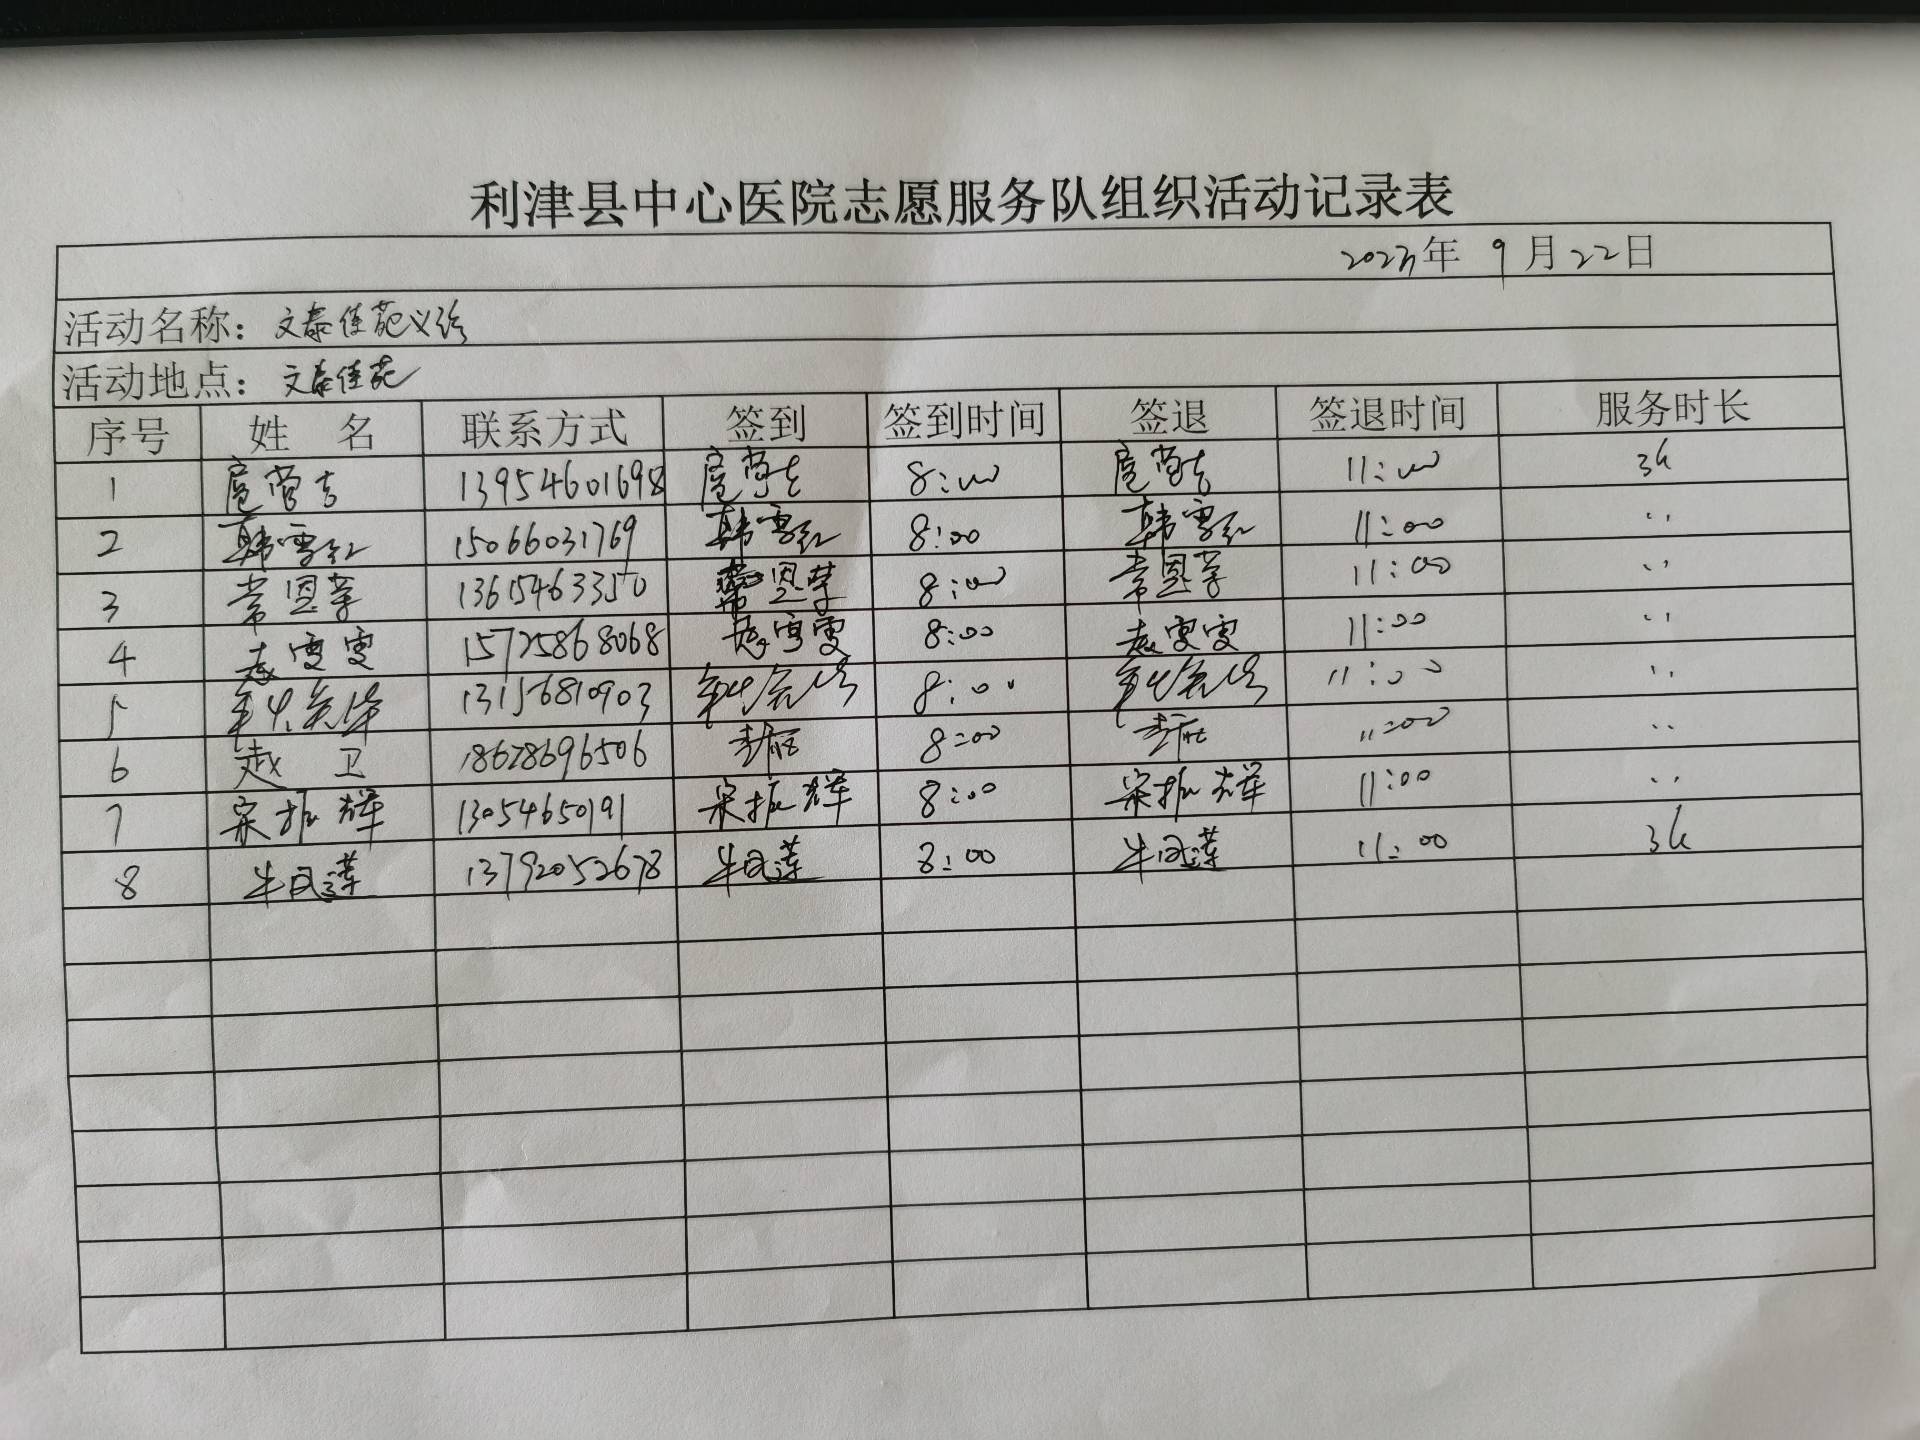 利津县中心医院志愿服务队组织活动记录表
2023年 9月22日
活动名称：文泰佳苑义诊
活动地点：文泰佳苑
序号 姓 名 联系方式 签到 签到时间 签退 签退时间 服务时长
1 13954601698 8:00 11:00 3h
2 韩雪红 15066031769 韩雪红 8:00 韩雪红 11:00 〃
3 常恩荣 13615463350 常恩荣 8:00 常恩荣 11:00 〃
4 赵雯雯 15725868068 赵雯雯 8:00 赵雯雯 11:00 〃
5 13156810903 8:00 11:00 〃
6 赵 卫 18678696506 8:00 11:00 〃
7 宋振辉 13054650191 宋振辉 8:00 宋振辉 11:00 〃
8 牛凤莲 13792052678 牛凤莲 8:00 牛凤莲 11:00 3h